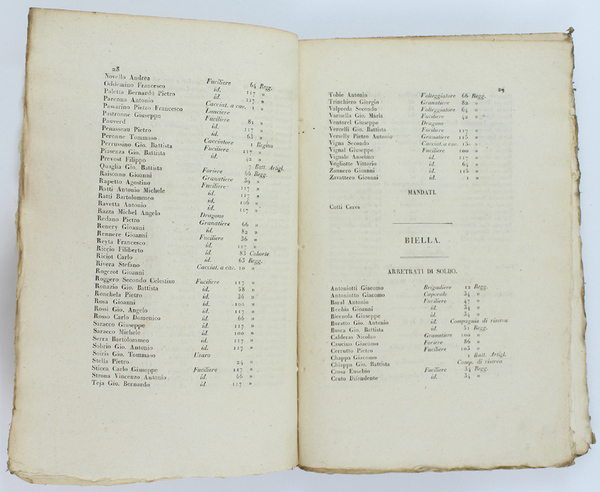 28
Novella Andrea Fuciliere 64 Regg.
Francesco id. 117 »
Paletta Bernardi Pietro id. 117 »
Parenza Antonio Cacciat. a cav. 1 »
Passarino Pietro Francesco Lanciere
Giuseppe Fuciliere 81 »
Pauverd id. 117 »
Penassean Pietro id. 63 »
Tommaso Cacciatore 1 Regina
Perrussino Gio. Battista Fuciliere 117 »
Piacenza Gio. Battista id. »
Prevost Filippo 7 Batt. Artigl.
Quaglia Gio. Battista Foriere 66 Regg.
Raisonno Gioanni Granatiere 34 »
Rapetto Agostino Fuciliere 117 »
Ratti Antonio Michele id. 117 »
Ratti Bartolommeo id. 106 »
Ravetta Antonio id. 117 »
Razza Michel Angelo Dragone
Redano Pietro Granatiere 66 »
Renery Gioanni id. 82 »
Gioanni Fuciliere 36 »
Reyta Francesco id. 117 »
Riccio Filiberto id. 83 Coorte
Riciot Carlo id. 63 Regg.
Rivera Stefano Cacciat. a cav. 10 »
Rogerot Gioanni
Roggero Secondo Celestino Fuciliere 117 »
Ronazio Gio. Battista id. 58 »
Ronchela Pietro id. 36 »
Rosa Gioanni id. 102 »
Rossi Gio. Angelo id. 117 »
Rosso Carlo Domenico id. 60 »
Saracco Giuseppe id. 117 »
Saracco Michele id. 100 »
Serra Bartolommeo id. 117 »
Silvio Gio. Antonio id. 117 »
Sciris Gio. Tommaso Usaro
Stella Pietro 24 »
Sticca Carlo Giuseppe Fuciliere 117 »
Strona Vincenzo Antonio id. 66 »
Teja Gio. Bernardo id. 117 »
29
Tobio Antonio Volteggiatore 66 Regg.
Trinchiero Giorgio Granatiere 82 »
Valpreda Secondo Volteggiatore 64 »
Varisella Gio. Maria Fuciliere 42 »
Ventorel Giuseppe Dragone
Vercelli Gio. Battista Fuciliere 117 »
Verselly Pietro Antonio Granatiere 115 »
Vigna Secondo Cacciat. a cav. 15 »
Vignal Giuseppe Fuciliere 100 »
Vignale Anselmo id. 117 »
Vogliotto Vittorio id. 64 »
Zanucco Gioanni id. 113 »
Zavattero Gioanni id. 1 »
MANDATI.
Cotti Ceres
BIELLA.
ARRETRATI DI SOLDO.
Antoniotti Giacomo Brigadiere 12 Regg.
Antoniotto Giacomo Caporale 34 »
Baral Antonio Fuciliere 47 »
Berbis Gioanni id. 34 »
Giuseppe id. 34 »
Buratto Gio. Antonio id. Compagnia di riserva
Busca Gio. Battista id. 51 Regg.
Calderas Nicolao Granatiere 100 »
Casciano Giacomo Foriere 86 »
Cerrutto Pietro Fuciliere 103 »
Chappo Giacomo 1 Batt. Artigl.
Chiappo Gio. Battista Comp. di riserva
Cossa Eusebio Fuciliere 34 Regg.
Crato Defendente id. 34 »